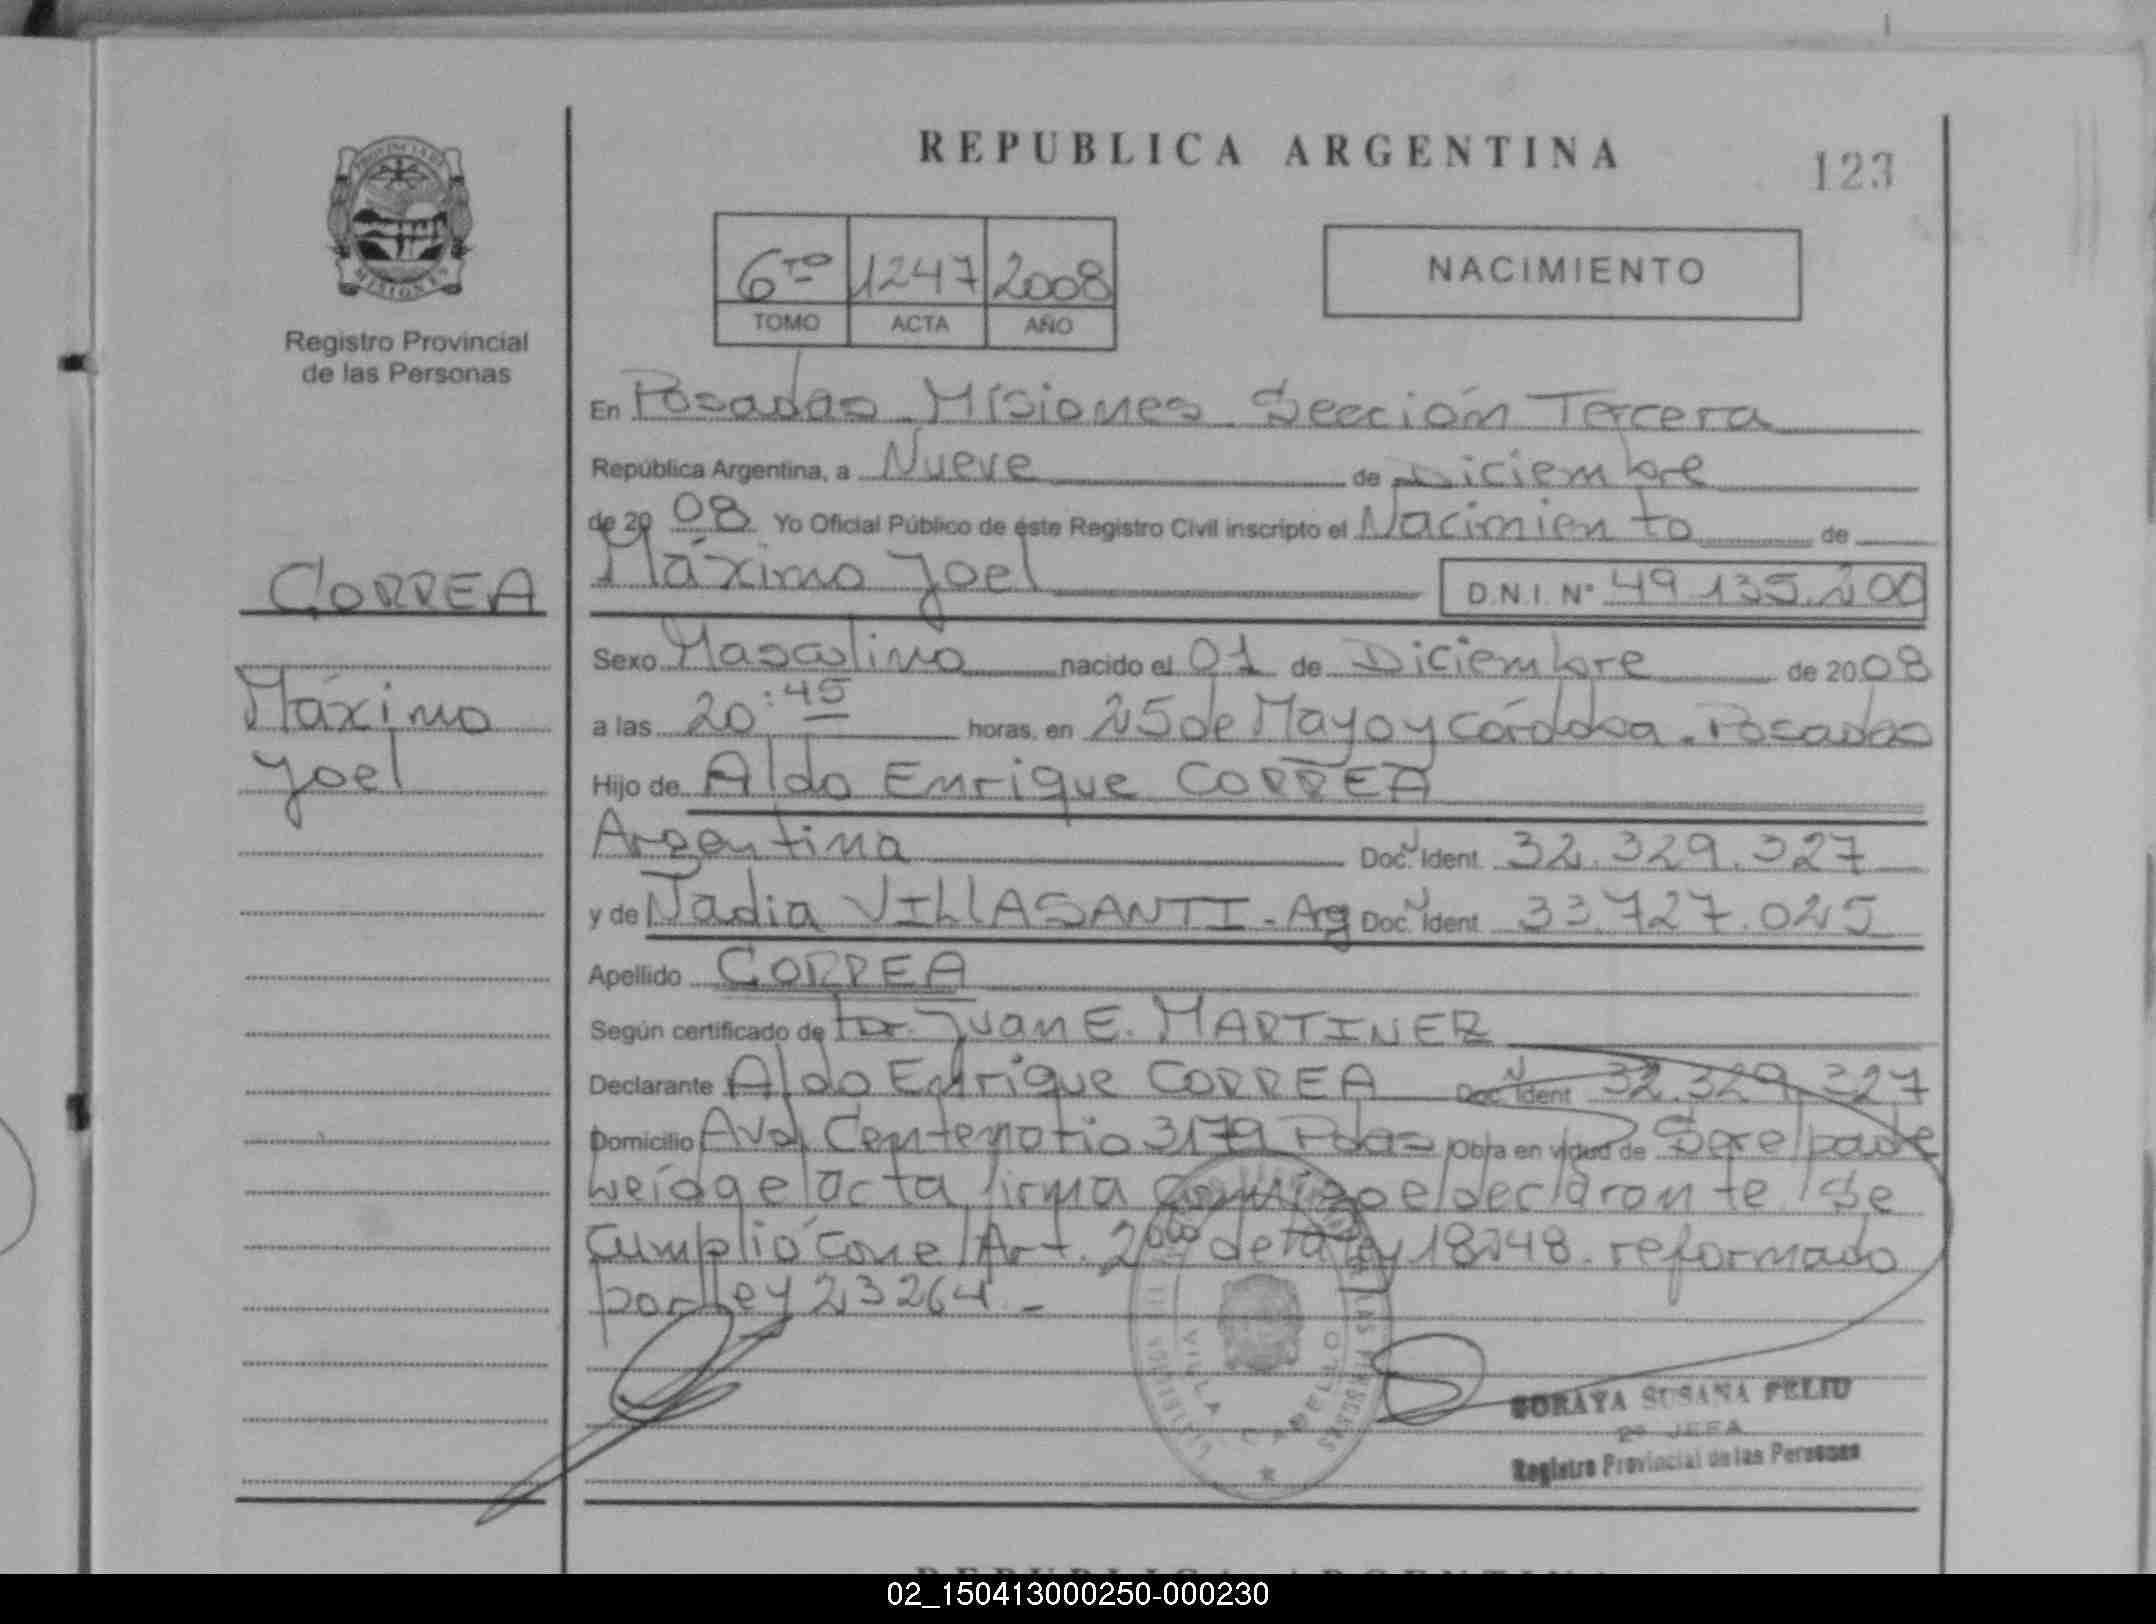 REPUBLICA ARGENTINA
123
PROVINCIA DE
MISIONES
Registro Provincial
de las Personas
6to 1247 2008
TOMO ACTA AÑO
NACIMIENTO
En Posadas Misiones Sección Tercera
República Argentina, a Nueve de Diciembre
de 2008 Yo Oficial Público de éste Registro Civil inscripto el Nacimiento de
Máximo Joel D.N.I. Nº 49.135.200
CORREA
Máximo
Joel
Sexo Masculino nacido el 01 de Diciembre de 2008
a las 20:45 horas, en 25 de Mayo y Córdoba. Posadas
Hijo de Aldo Enrique CORREA
Argentina Doc. Ident. 32.329.327
y de Nadia VILLASANTI - Arg Doc. Ident. 33.727.025
Apellido CORREA
Según certificado de Dr. Juan E. MARTINEZ
Declarante Aldo Enrique CORREA Doc. Ident. 32.329.327
Domicilio Avd. 3179 Pdas Obra en virtud de Ser el padre
Leída el acta firma conmigo el declarante. Se
cumplió con el Art. 2do de la Ley 18248. reformado
por Ley 23264.-
VILLA CABELLO
LAS PERSONAS
SORAYA SUSANA FELIU
2º JEFA
Registro Provincial de las Personas
REPUBLICA ARGENTINA
02_150413000250-000230